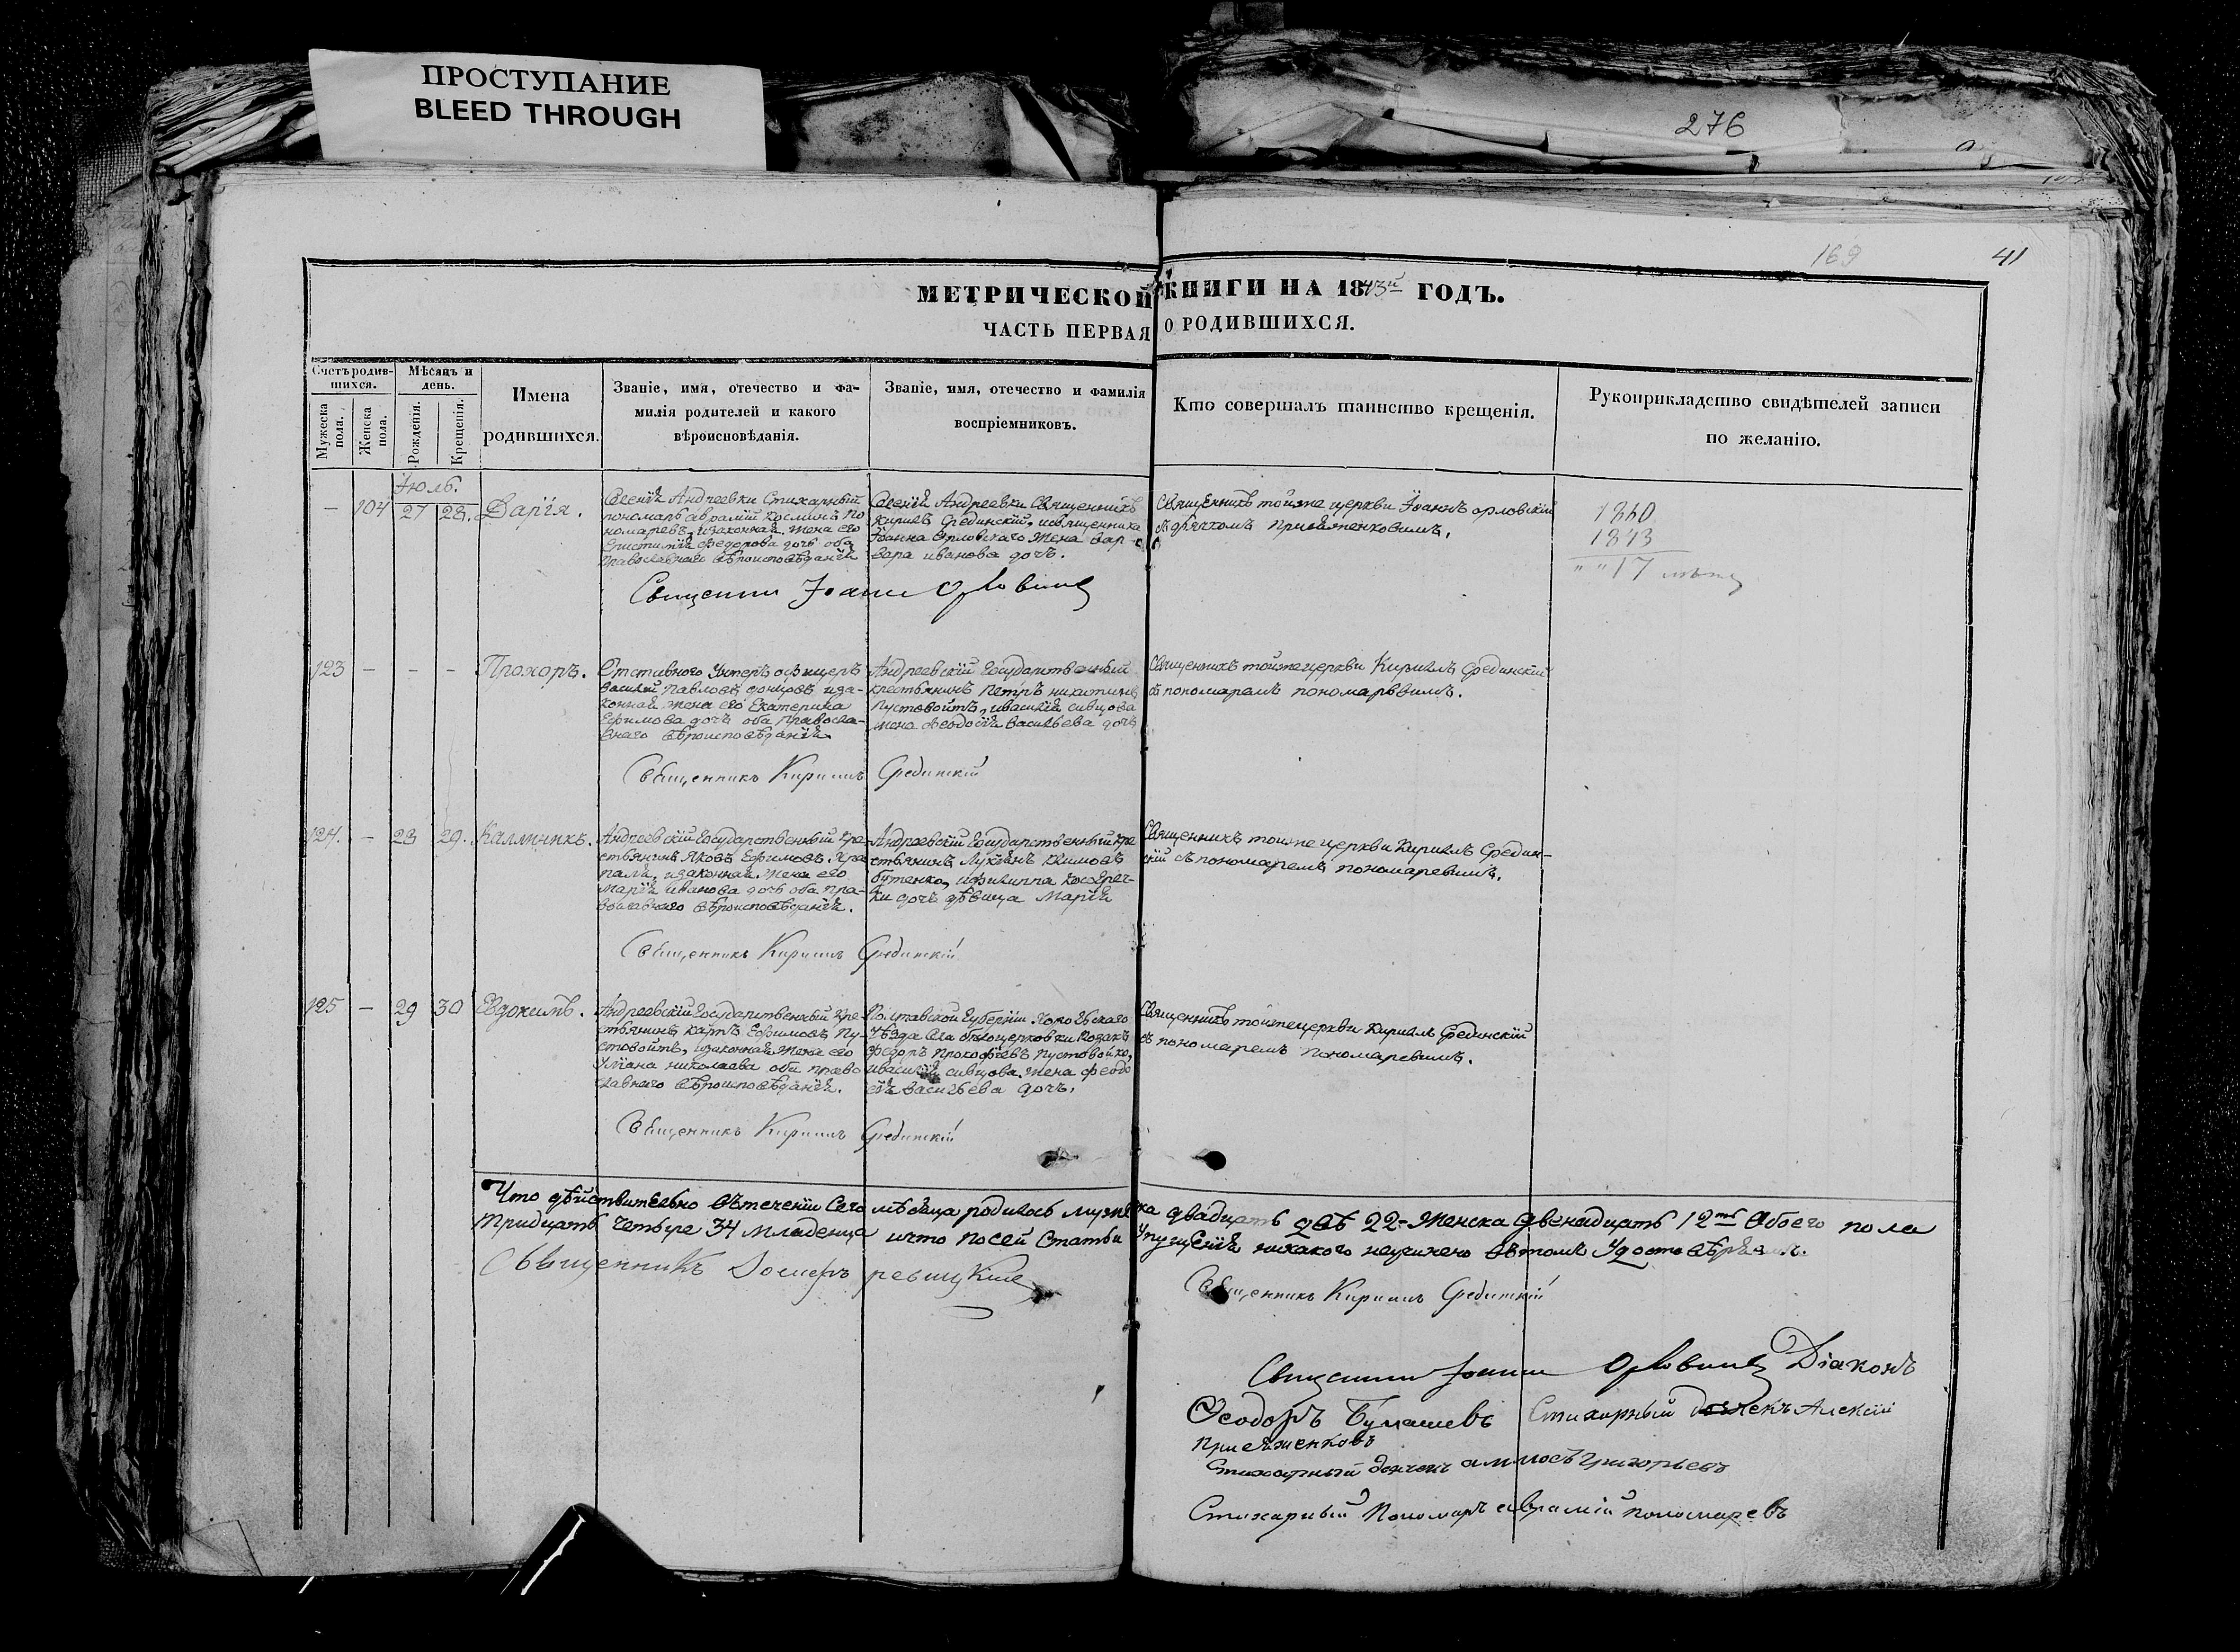 ПРОСТУПАНИЕ
BLEED THROUGH
276
169
41
МЕТРИЧЕСКОЙ КНИГИ НА 1843й ГОДЪ.
ЧАСТЬ ПЕРВАЯ О РОДИВШИХСЯ.
Счетъ родив-
шихся.
Мужеска
пола.
Женска
пола.
Мѣсяцъ и
день.
Рожденія.
Крещенія.
Имена
родившихся.
Званіе, имя, отечество и фа-
милія родителей и какого
вѣроисновѣданія.
Званіе, имя, отечество и фамилія
воспріемниковъ.
Кто совершалъ таинство крещенія.
Рукоприкладство свидѣтелей записи
по желанію.
Іюль.
— 104 27 28. Дарія.
Андреевки Стихарный
пономарь Аврамій Косминъ По-
номаревъ, изаконная жена его
Федорова дочь оба
православнаго вѣроисповѣданія
Андреевки Священникъ
Кирилъ Срединскій, исвященника
Іоанна Орловскаго жена Вар-
вара иванова дочь.
Священникъ тойже церкви Іоаннъ орловскій
съ дьячкомъ
1860
1843
" " 17
Священник Іоанн Орловский
123 — — — Прохоръ.
Отставного Унтеръ офицеръ
василий Павловъ иза-
конная жена его Екатерина
Ефимова дочь оба Правосла-
внаго вѣроисповѣданія
Андреевскій Государственный
крестьянинъ Петръ никитинъ
Пустовойтъ, ивасилія сивцова
жена Феодосія васильева дочь
Священникъ тойже церкви Кирилъ Срединскій
съ пономаремъ пономаревимъ.
Священникъ Кирилъ Срединскій
124. — 28 29. Каллиникъ.
Андреевскій Государственный кре-
стьянинъ Яковъ Ефимовъ.
изаконная жена его
Марія иванова дочь оба пра-
вославнаго вѣроисповѣданія.
Андреевскій Государственный кре-
стьянинъ Лукіянъ Климовъ
бутенко, ифилиппа
дочь дѣвица Марія
Священникъ тойже церкви Кирилъ Средин-
скій съ пономаремъ пономаревимъ.
Священникъ Кирилъ Срединскій
125 — 29 30 Евдокимъ.
Андреевскій Государственный кре-
стьянинъ Карпъ Ефимовъ Пу-
стовойтъ, изаконная жена его
Уліяна николаева оба право
славнаго вѣроисповѣданія.
Полтавской Губерніи
Уѣзда Села бѣлоцерковки Козакъ
Федоръ Прокофіевъ Пустовойко,
ивасилія сивцова жена феодо
сія васильева дочь.
Священникъ тойже церкви Кирилъ Срединскій
съ пономаремъ пономаревимъ.
Священникъ Кирилъ Срединскій
Что дѣйствительно вътеченіи Сего мѣсяца родилось мужеска двадцать два 22-Женска двенадцать 12ть Обоего пола
тридцать четыре 34 младенца ичто посей Статьи Упущенія никакого неучинено вътомъ Удостовѣряемъ.
Священникъ
Священникъ Кирилъ Срединскій
Священник Іоанн Орловский Діаконъ
Феодоръ Стихарный Алексій
Стихарный Григорьевъ
Стихарный Пономарь аврамій пономаревъ